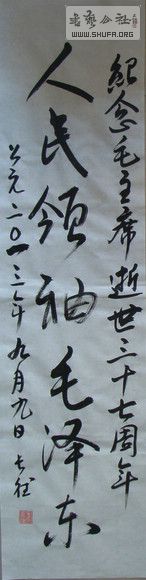 书艺公社
WWW.SHUFA.ORG
纪念毛主席逝世三十七周年
人民领袖毛泽东
公元二〇一三年九月九日 长征